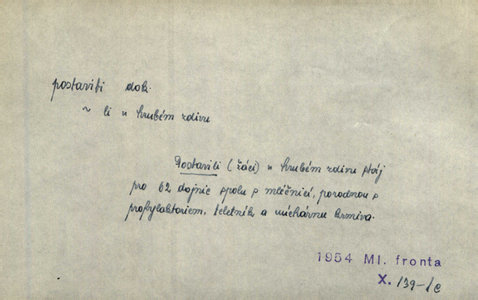 postaviti dok.
~ li v hrubém zdivu
Postavili (žáci) v hrubém zdivu stáj
pro 62 dojnic spolu s mléčnicí, porodnou s
profylaktoriem, teletník a míchárnu krmiva.
1954 Ml. fronta
X. 139-1c